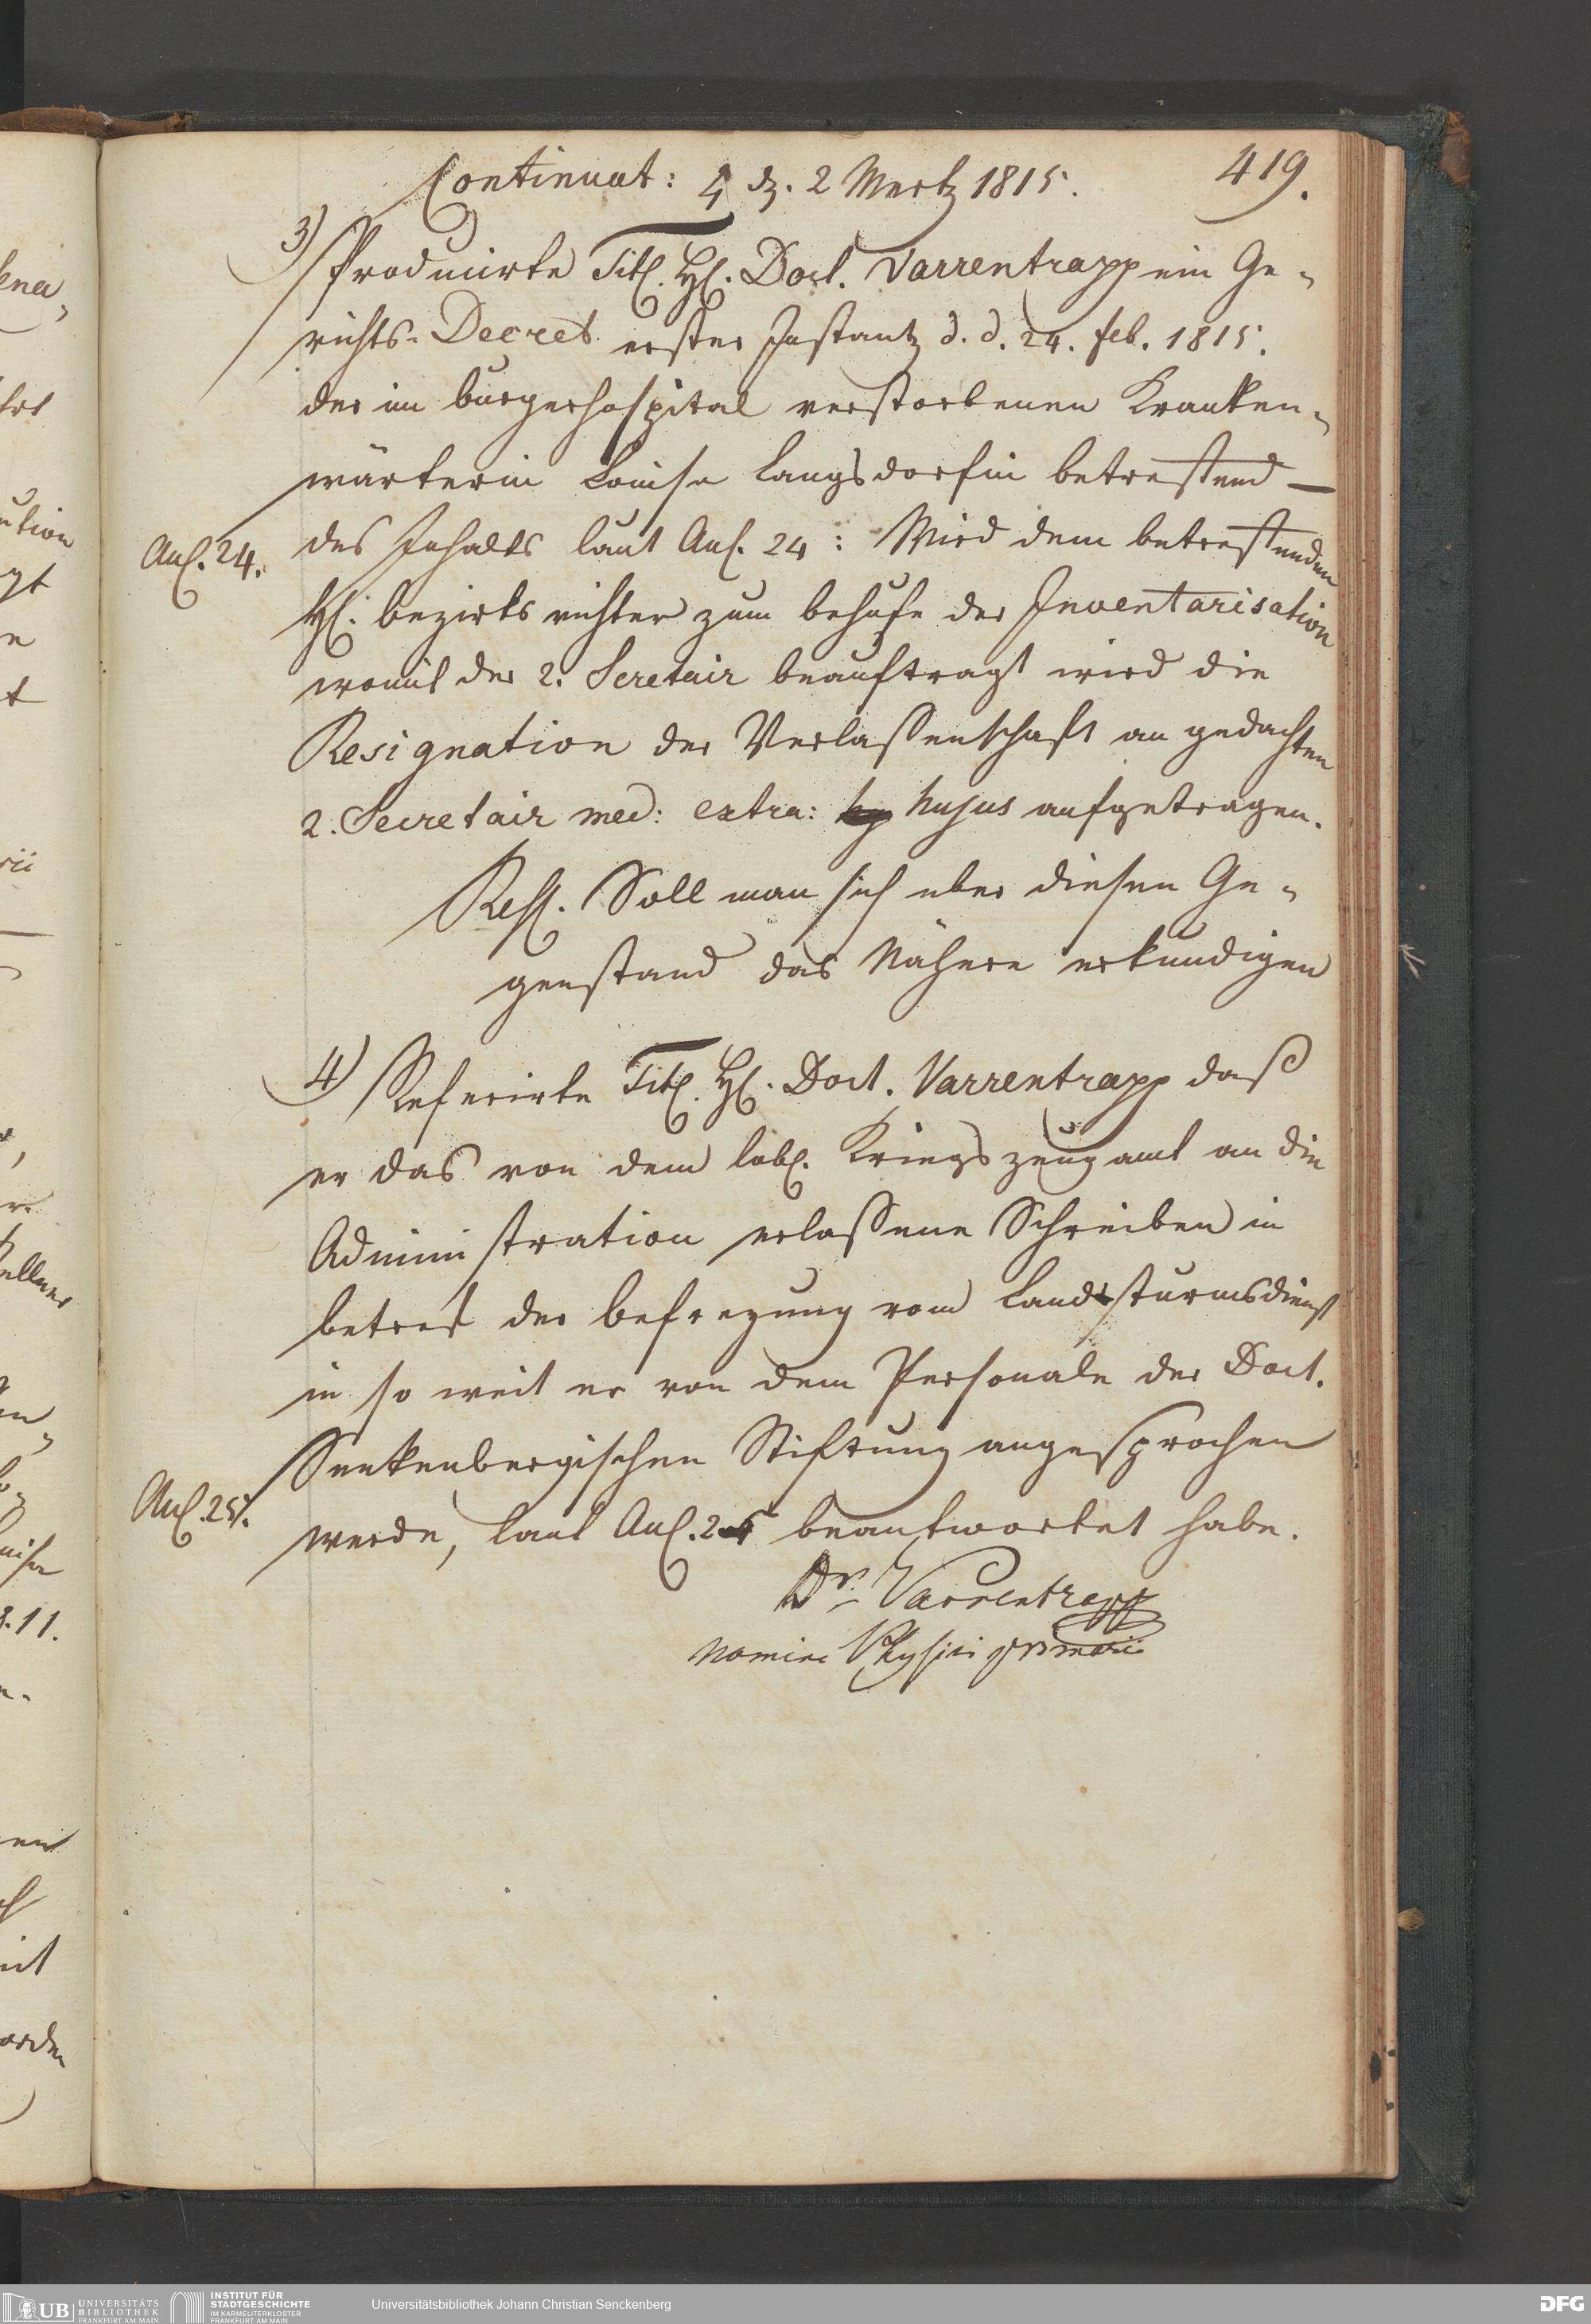 Continuat: ♃ d. 2 Mertz 1815.
419.
3) Producirte Titl. Hl. Doct. Varrentrapp ein Ge-
richts-Decret erster Instantz d. d. 24. feb. 1815.
der im burgerhospital verstorbenen Kranken-
wärterin Louise Langsdorfin betreffend —
Anl. 24.
des Inhalts laut Anl. 24: Wird dem betreffenden
Hl. bezirksrichter zum behufe der Inventarisation
womit der 2. Seretair beauftragt wird die
Resignation der Verlassenschaft an gedachten
2. Secretair med: extra: hujus aufgetragen.
Resl. Soll man sich uber diesen Ge-
genstand das Nähere erkundigen
4) Referirte Titl. Hl. Doct. Varrentrapp daß
er das von dem löbl. Kriegszeugamt an die
Administration erlassene Schreiben in
betref der befreyung vom Landsturmsdienst
in so weit er von dem Personale der Doct.
Senkenbergischen Stiftung angesprochen
Anl. 25.
werde, laut Anl. 25 beantwortet habe.
Dr. Varrentrapp
nomine Physici primarii
ena,
hrt
ution
gt
e
t
rii
ellner
en,
8.11.
en
it
orden
UB UNIVERSITÄTS
BIBLIOTHEK
FRANKFURT AM MAIN
INSTITUT FÜR
STADTGESCHICHTE
IM KARMELITERKLOSTER
FRANKFURT AM MAIN
Universitätsbibliothek Johann Christian Senckenberg
DFG